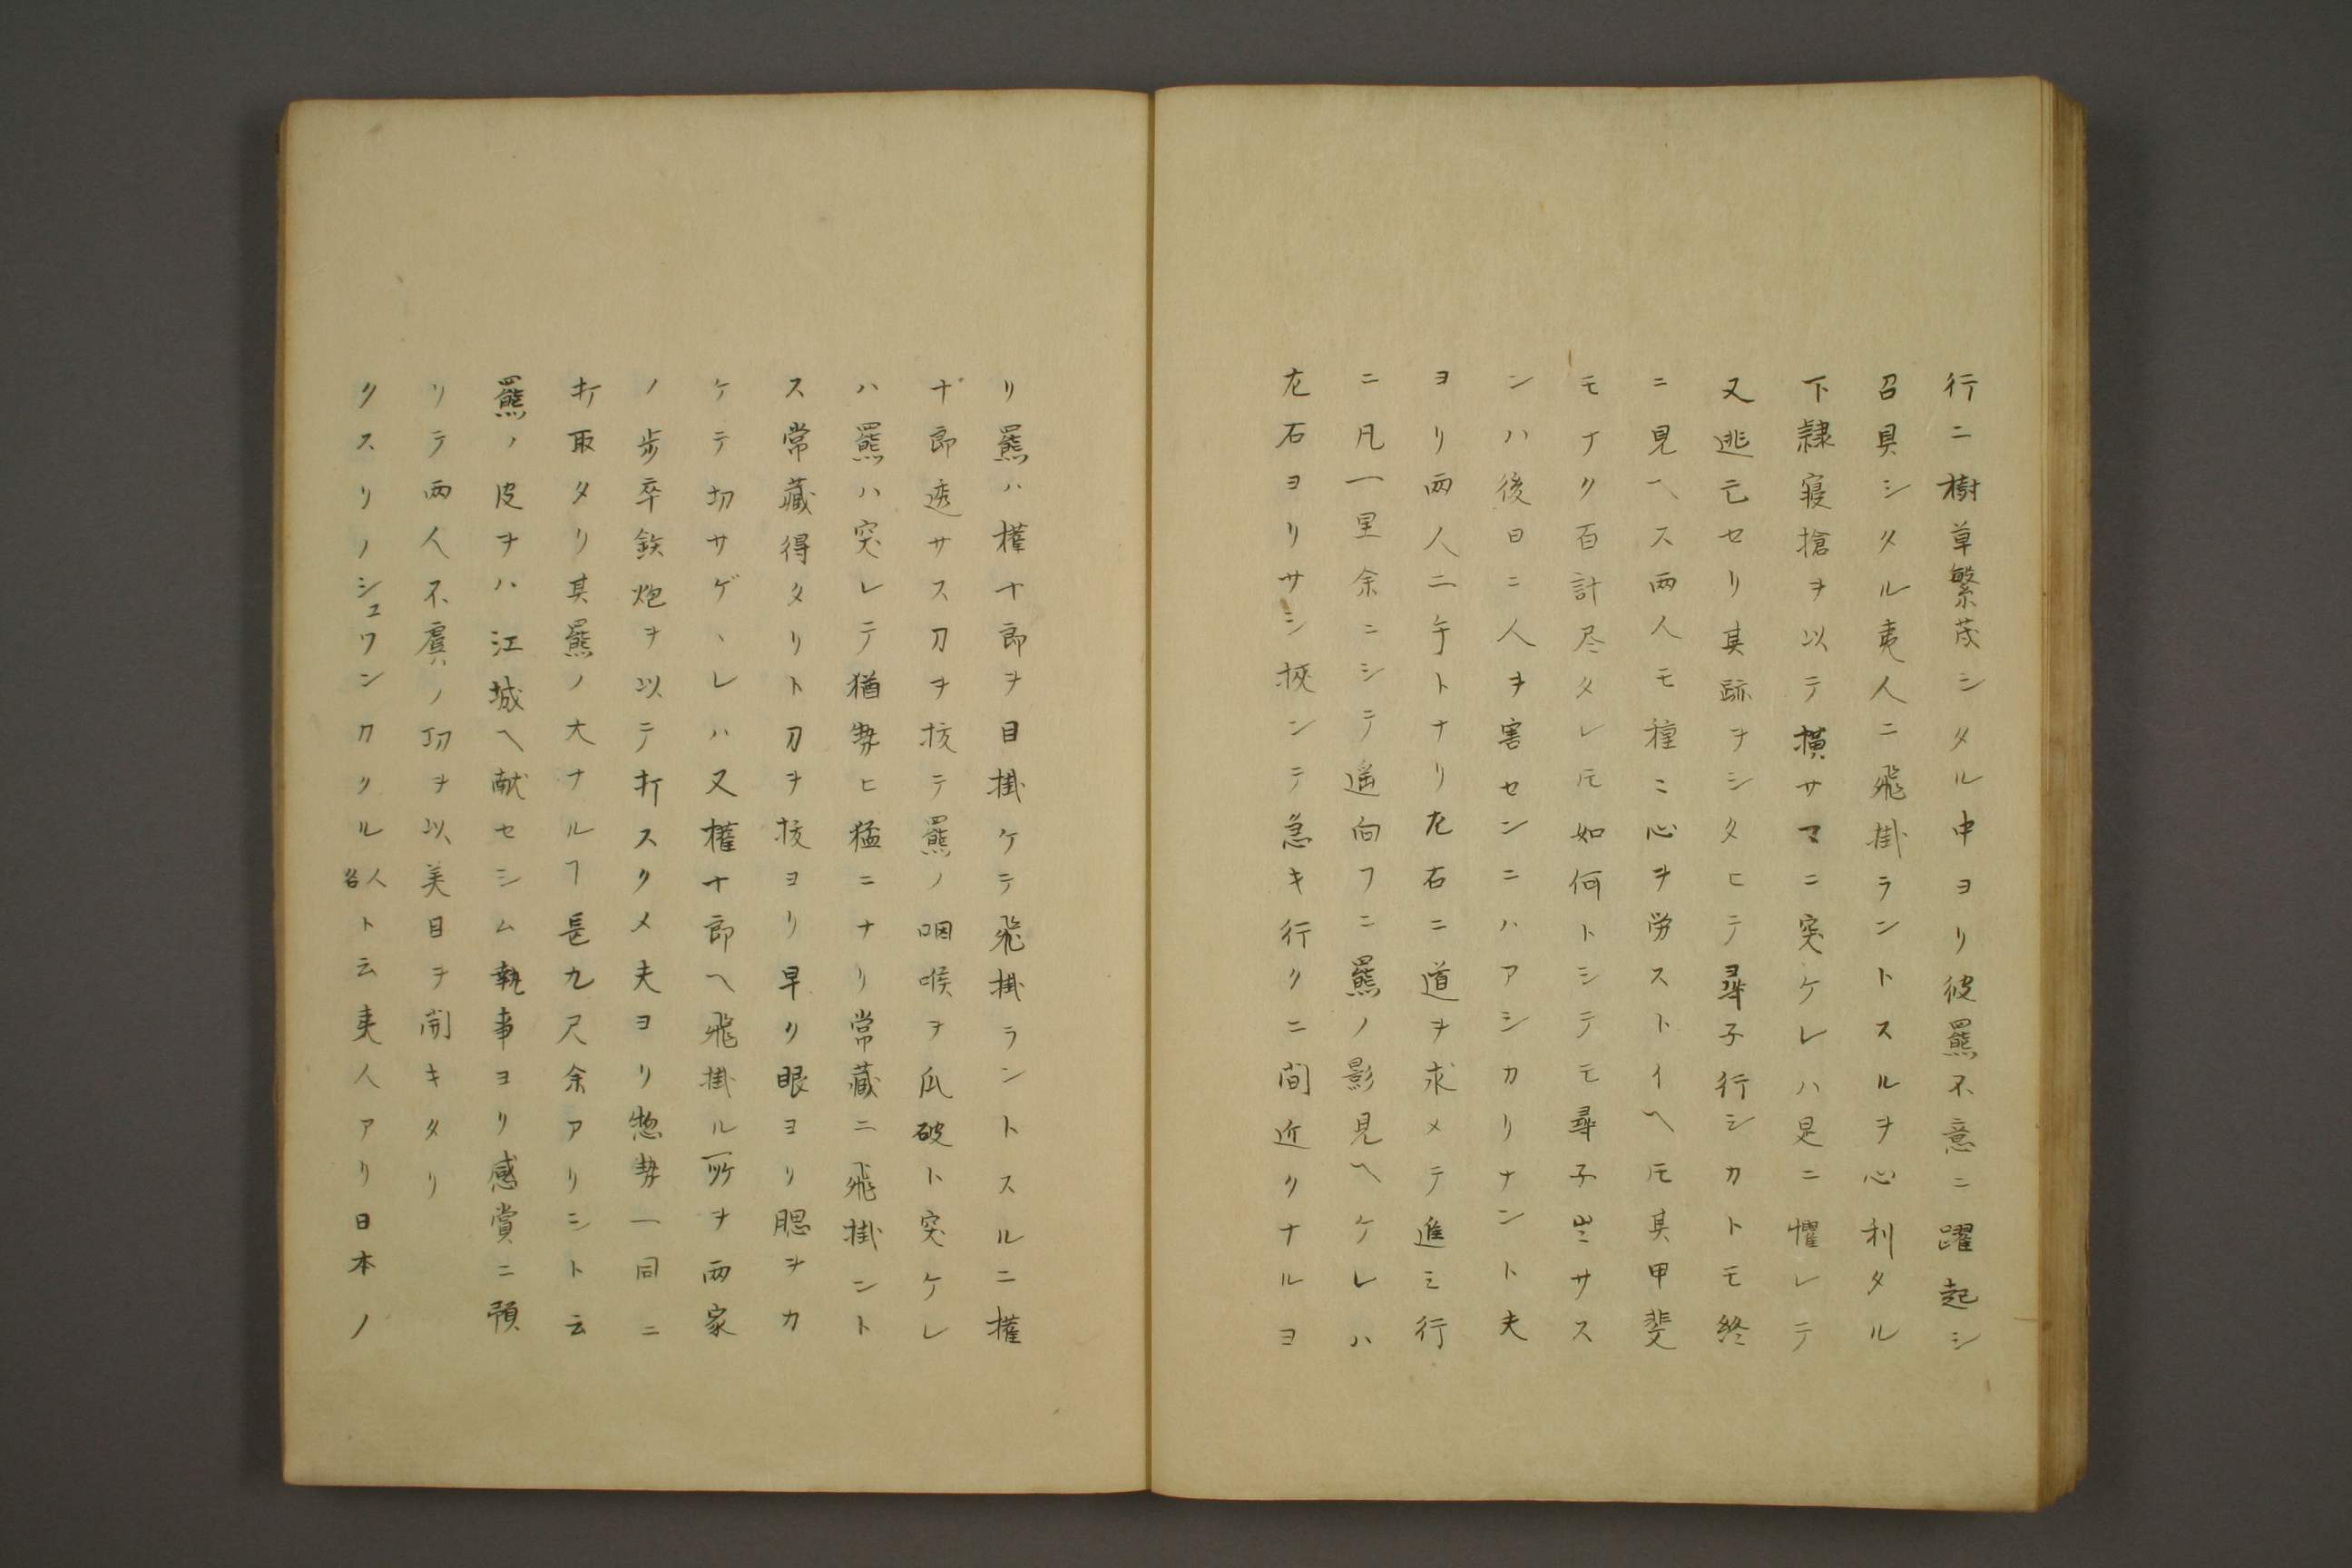 行ニ樹草繁茂シタル中ヨリ彼羆不意ニ躍起シ
召具シタル夷人ニ飛掛ラントスルヲ心利タル
下隷寝搶ヲ以テ横サマニ突ケレハ是ニ懼レテ
又逃亡セリ其跡ヲシタヒテ尋子行シカトモ終
ニ見ヘス両人モ種ミ心ヲ労ストイヘ𪜈其甲斐
モナク百計尽タレ𪜈如何トシテモ尋子出サス
ンハ後日ニ人ヲ害センニハアシカリナント夫
ヨリ両人二手トナリ左右ニ道ヲ求メテ進ミ行
ニ凡一里余ニシテ遥向フニ羆ノ影見ヘケレハ
左右ヨリサシ挾ンテ急キ行クニ間近クナルヨ
リ羆ハ権十郎ヲ目掛ケテ飛掛ラントスルニ権
十郎透サス刀ヲ抜テ羆ノ咽喉ヲ瓜破ト突ケレ
ハ羆ハ突レテ猶勢ヒ猛ニナリ常藏ニ飛掛ント
ス常藏得タリト刀ヲ抜ヨリ早ク眼ヨリ腮ヲカ
ケテ切サゲヽレハ又権十郎ヘ飛掛ル所ヲ両家
ノ歩卒鉄炮ヲ以テ打スクメ夫ヨリ惣勢一同ニ
打取タリ其羆ノ大ナルヿ長九尺余アリシト云
羆ノ皮ヲハ江城ヘ献セシム執事ヨリ感賞ニ預
リテ両人不虞ノ功ヲ以美目ヲ開キタリ
クスリノシュワンカクル人名ト云夷人アリ日本ノ